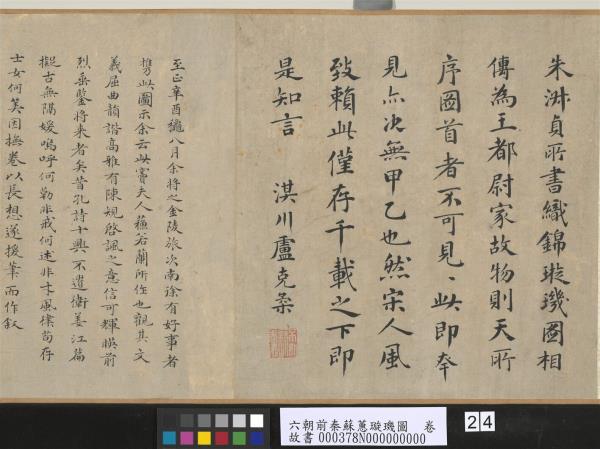 朱淑貞所書織錦璇璣圖相
傳為王都尉家故物則天所
序圖首者不可見、此即奉
見亦次無甲乙也然宋人風
致賴此僅存千載之下即
是知言　淇川盧克柔
至正辛酉繩八月余將之金陵旅次南徐有好事者
携此圖示余云此竇夫人蘇若蘭所作也觀其文
義屈曲韻諧高雅有陳規啓諷之意信可輝暎前
烈垂鑒將来者矣昔孔詩十興不遺衛姜江篇
擬古無隔媛嗚呼何勒非戒何述非才風樸苟存
士女何美因撫卷以長想遂援筆而作叙
六朝前秦蘇蕙璇璣圖　卷
故書000378N000000000
24